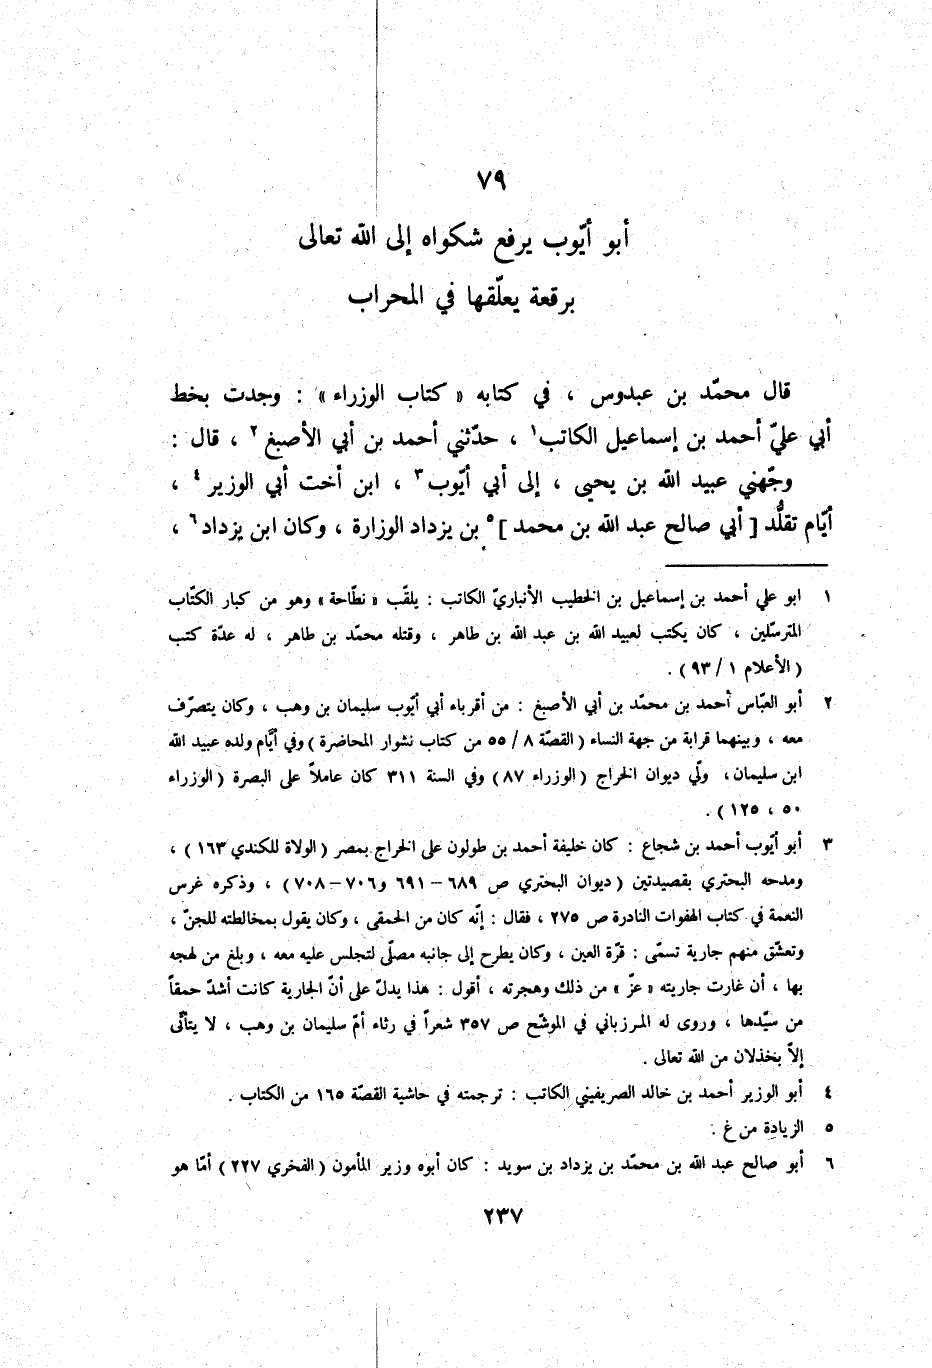 ٧٩
أبو أيّوب يرفع شكواه إلى اللّه تعالى
برقعة يعلّقها في المحراب
قال محمّد بن عبدوس ، في كتابه « كتاب الوزراء » : وجدت بخط
أبي عليّ أحمد بن إسماعيل الكاتب١ ، حدّثني أحمد بن أبي الأصبغ٢ ، قال :
وجّهني عبيد اللّه بن يحيى ، إلى أبي أيّوب٣ ، ابن أخت أبي الوزير٤ ،
أيّام تقلُّد [ أبي صالح عبد اللّه بن محمد ]٥ بن يزداد الوزارة ، وكان ابن يزداد٦ ،
١ ابو علي أحمد بن إسماعيل بن الخطيب الأنباريّ الكاتب : يلقّب « نطّاحة » وهو من كبار الكتّاب
المترسّلين ، كان يكتب لعبيد اللّه بن عبد اللّه بن طاهر ، وقتله محمّد بن طاهر ، له عدّة كتب
( الأعلام ١ / ٩٣ ) .
٢ أبو العبّاس أحمد بن محمّد بن أبي الأصبغ : من أقرباء أبي أيّوب سليمان بن وهب ، وكان يتصرّف
معه ، وبينهما قرابة من جهة النساء ( القصّة ٨ / ٥٥ من كتاب نشوار المحاضرة ) وفي أيّام ولده عبيد اللّه
ابن سليمان ، ولّي ديوان الخراج ( الوزراء ٨٧ ) وفي السنة ٣١١ كان عاملاً على البصرة ( الوزراء
٥٠ ، ١٢٥ ) .
٣ أبو أيّوب أحمد بن شجاع : كان خليفة أحمد بن طولون على الخراج بمصر ( الولاة للكندي ١٦٣ ) ،
ومدحه البحتري بقصيدتين ( ديوان البحتري ص ٦٨٩ – ٦٩١ و ٧٠٦ – ٧٠٨ ) ، وذكره غرس
النعمة في كتاب الهفوات النادرة ص ٢٧٥ ، فقال : إنّه كان من الحمقى ، وكان يقول بمخالطته للجنّ ،
وتعشّق منهم جارية تسمّى : قرّة العين ، وكان يطرح إلى جانبه مصلّى لتجلس عليه معه ، وبلغ من لهجه
بها ، أن غارت جاريته « عزّ » من ذلك وهجرته ، أقول : هذا يدلّ على أنّ الجارية كانت أشدّ حمقاً
من سيّدها ، وروى له المرزباني في الموشّح ص ٣٥٧ شعراً في رثاء أمّ سليمان بن وهب ، لا يتأتّى
إلاّ بخذلان من اللّه تعالى .
٤ أبو الوزير أحمد بن خالد الصريفيني الكاتب : ترجمته في حاشية القصّة ١٦٥ من الكتاب .
٥ الزيادة من غ .
٦ أبو صالح عبد اللّه بن محمّد بن يزداد بن سويد : كان أبوه وزير المأمون ( الفخري ٢٢٧ ) أمّا هو
٢٣٧